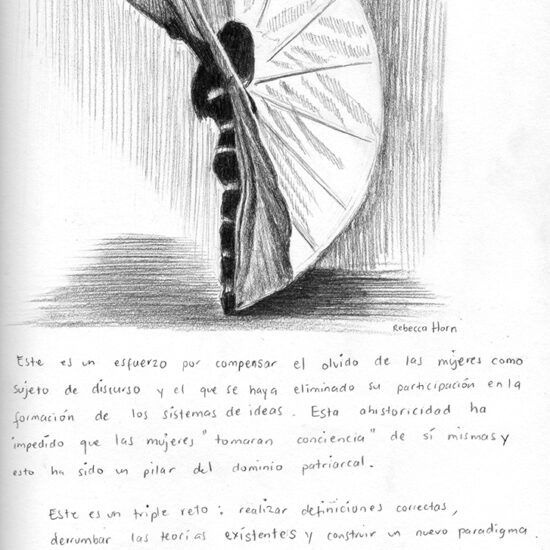 Rebecca Horn
Este es un esfuerzo por compensar el olvido de las mujeres como
sujeto de discurso y el que se haya eliminado su participación en la
formación de los sistemas de ideas. Esta ahistoricidad ha
impedido que las mujeres "tomaran conciencia" de sí mismas y
esto ha sido un pilar del dominio patriarcal.
Este es un triple reto: realizar definiciones correctas,
derrumbar las teorías existentes y construir un nuevo paradigma.